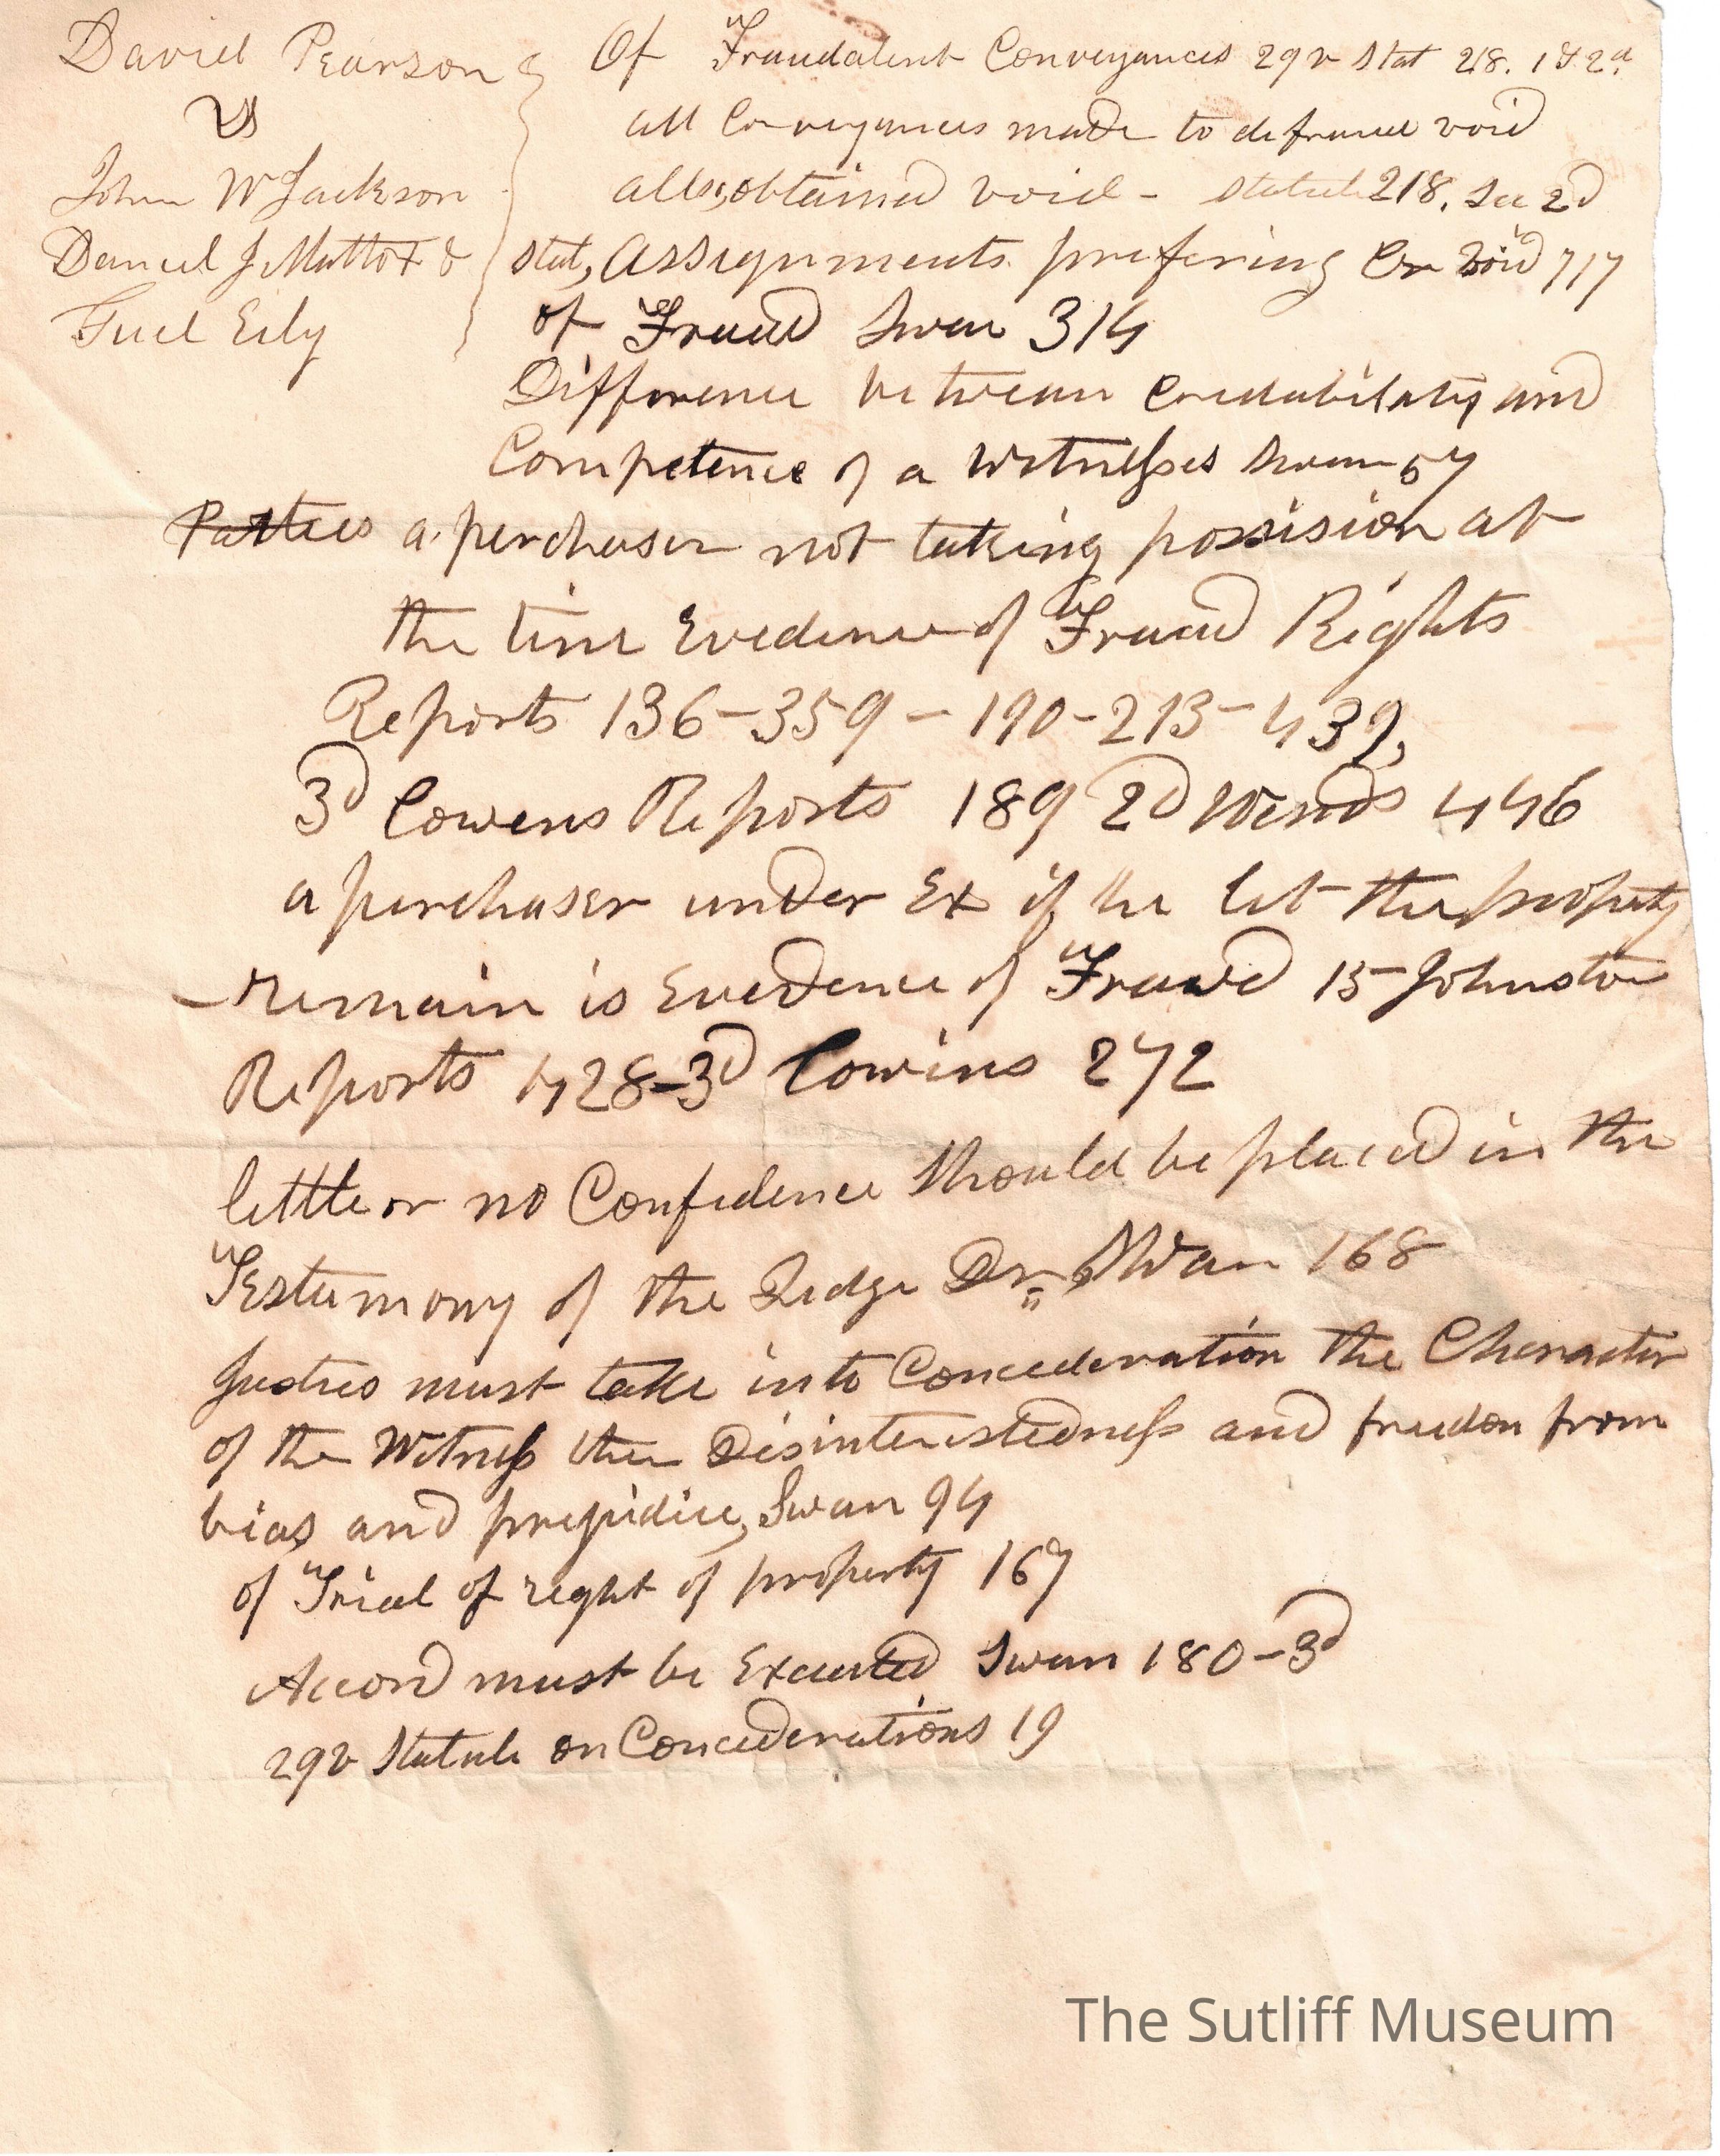 David Pearson
vs
John W Jackson
Daniel J Mattox &
Of Fraudalent Conveyances 29 v Stat 218. 1 & 2d
all Conveyances made to defraud void
obtained void - statute 218. Sec 2d
stat, Assignments prefering Cr void 717
of Fraud Swan 314
Difference between Credabilaty and
Competence of a Witnesses Swan 57
Parties a perchaser not taking possision at
the time Evedence of Fraud Rights
Reports 136-359-190-213-439,
3d Cowens Reports 189 2d Wends 446
a perchaser under Ex if he let the property
remain is Evedence of Fraud 15 Johnston
Reports 428-3d Cowins 272
little or no Confidence Should be placed in the
Testumony of the Judge Dr, Swan 168
Justies must take into Concederation the Charactor
of the Witness their Disinterestedness and freedon from
bias and prejudice, Swan 94
of Trial of right of property 167
Accord must be Executed Swan 180-3d
29 v Statute on Concederations 19
The Sutliff Museum